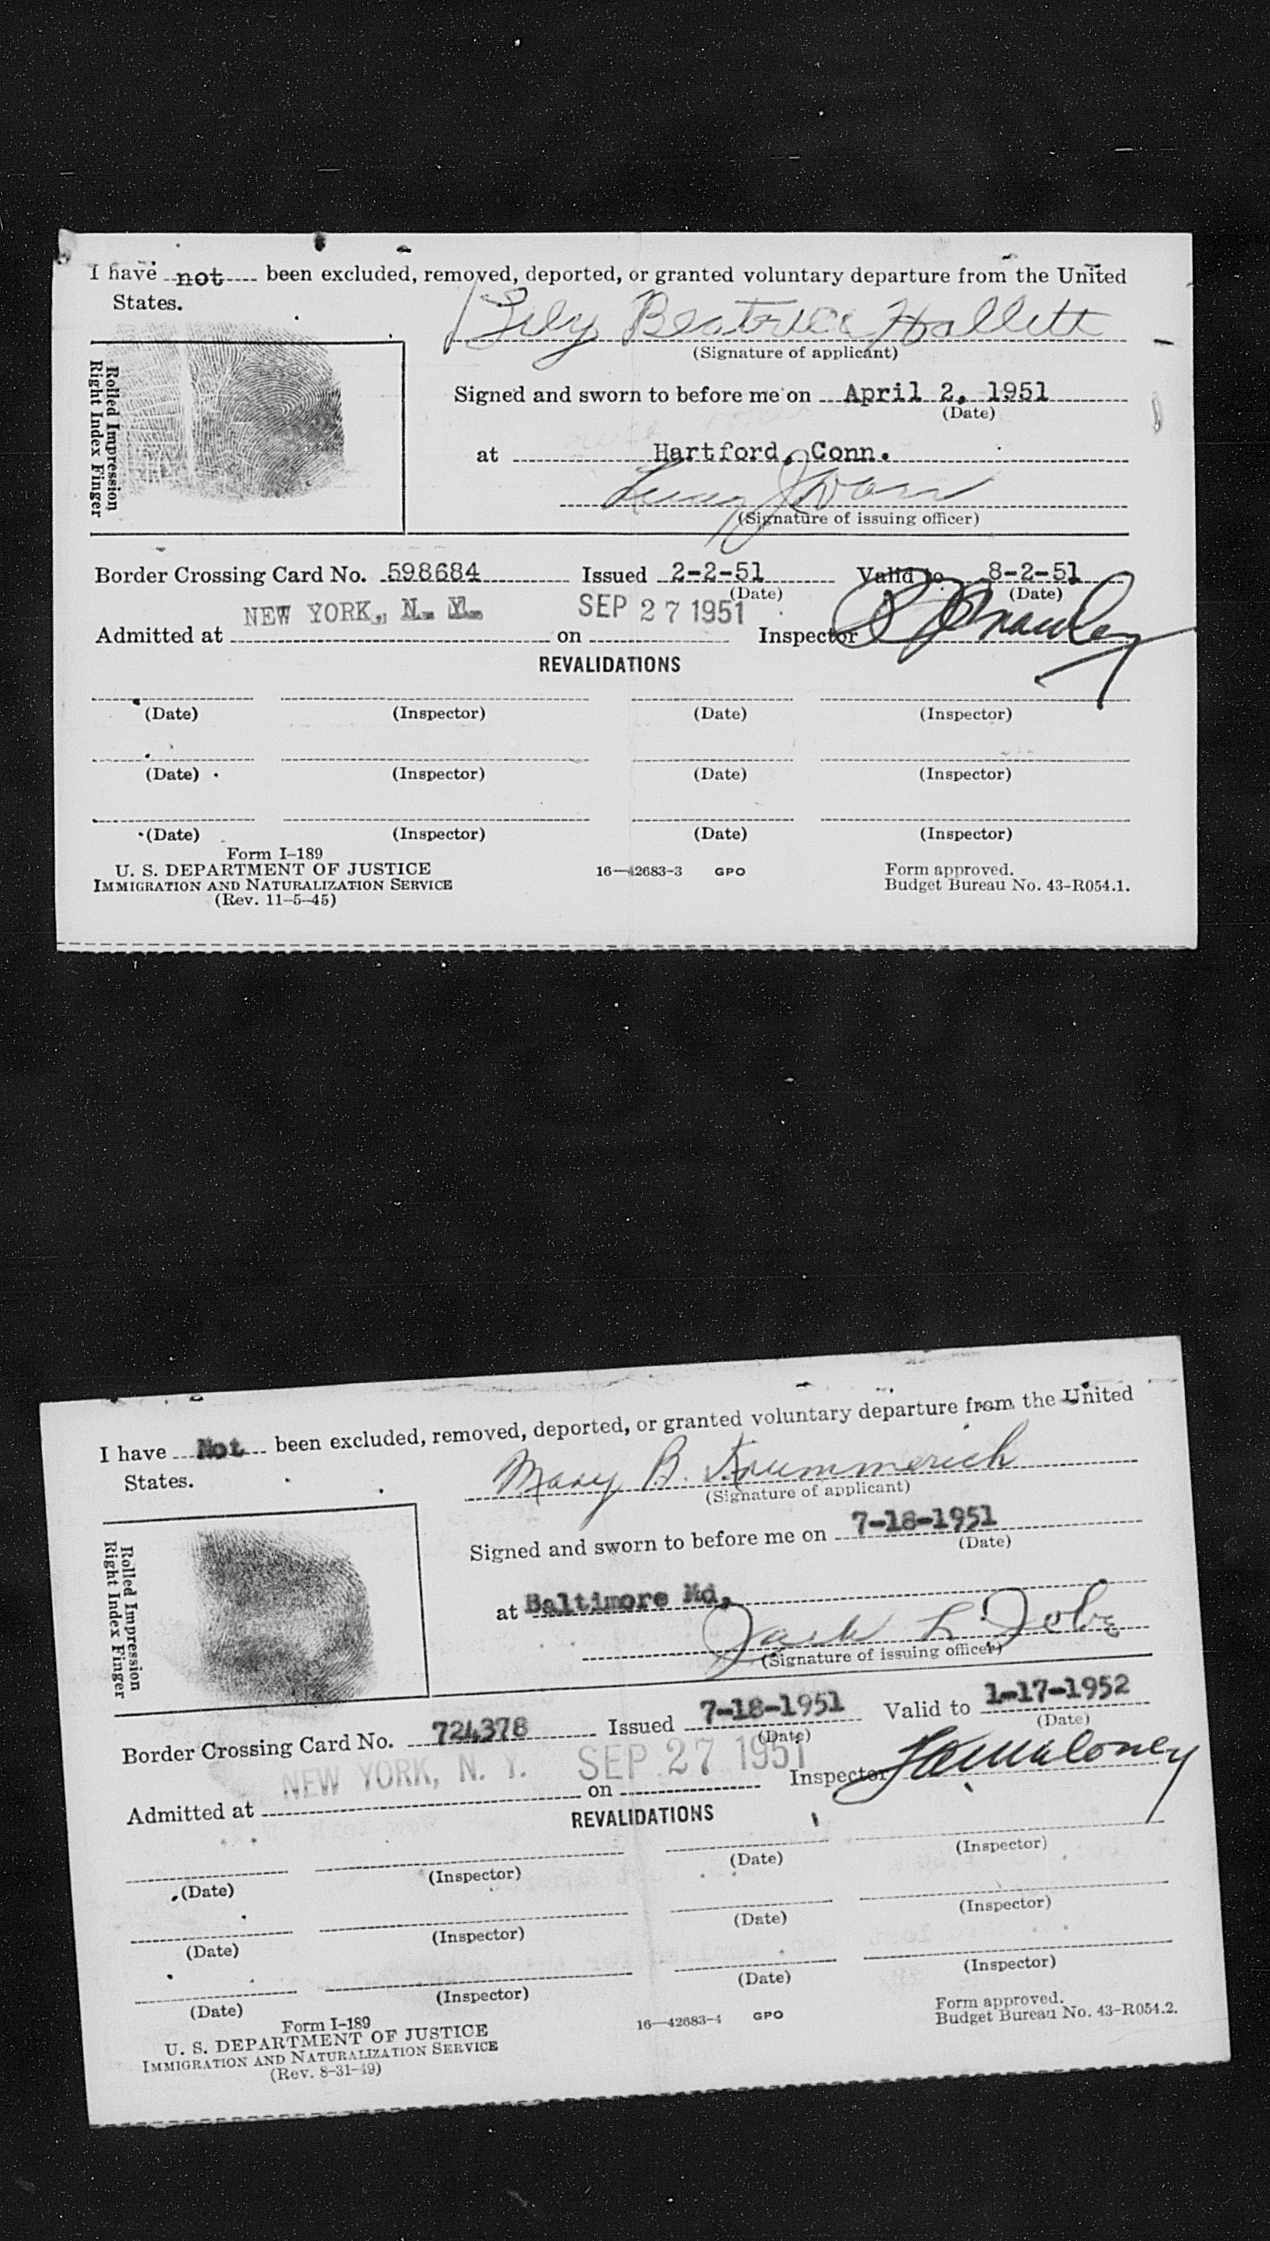 I have not been excluded, removed, deported, or granted voluntary departure from the United
States.
Lily Beatrice Hallett
(Signature of applicant)
Rolled Impression
Right Index Finger
Signed and sworn to before me on April 2, 1951
(Date)
at Hartford, Conn.
(Signature of issuing officer)
Border Crossing Card No. 598684 Issued 2-2-51 Valid to 8-2-51
(Date) (Date)
NEW YORK, N. Y. SEP 27 1951
Admitted at on Inspector
REVALIDATIONS
(Date) (Inspector) (Date) (Inspector)
(Date) (Inspector) (Date) (Inspector)
(Date) (Inspector) (Date) (Inspector)
Form I-189
U. S. DEPARTMENT OF JUSTICE 16—42683-3 GPO Form approved.
IMMIGRATION AND NATURALIZATION SERVICE Budget Bureau No. 43-R054.1.
(Rev. 11-5-45)
I have Not been excluded, removed, deported, or granted voluntary departure from the United
States.
Mary B. Krummerich
(Signature of applicant)
Rolled Impression
Right Index Finger
Signed and sworn to before me on 7-18-1951
(Date)
at Baltimore Md,
Jack L
(Signature of issuing officer)
Border Crossing Card No. 724378 Issued 7-18-1951 Valid to 1-17-1952
(Date) (Date)
NEW YORK, N. Y. SEP 27 1951
Admitted at on Inspector Maloney
REVALIDATIONS
(Date) (Inspector) (Date) (Inspector)
(Date) (Inspector) (Date) (Inspector)
(Date) (Inspector) (Date) (Inspector)
Form I-189
U. S. DEPARTMENT OF JUSTICE 16—42683-4 GPO Form approved.
IMMIGRATION AND NATURALIZATION SERVICE Budget Bureau No. 43-R054.2.
(Rev. 8-31-49)